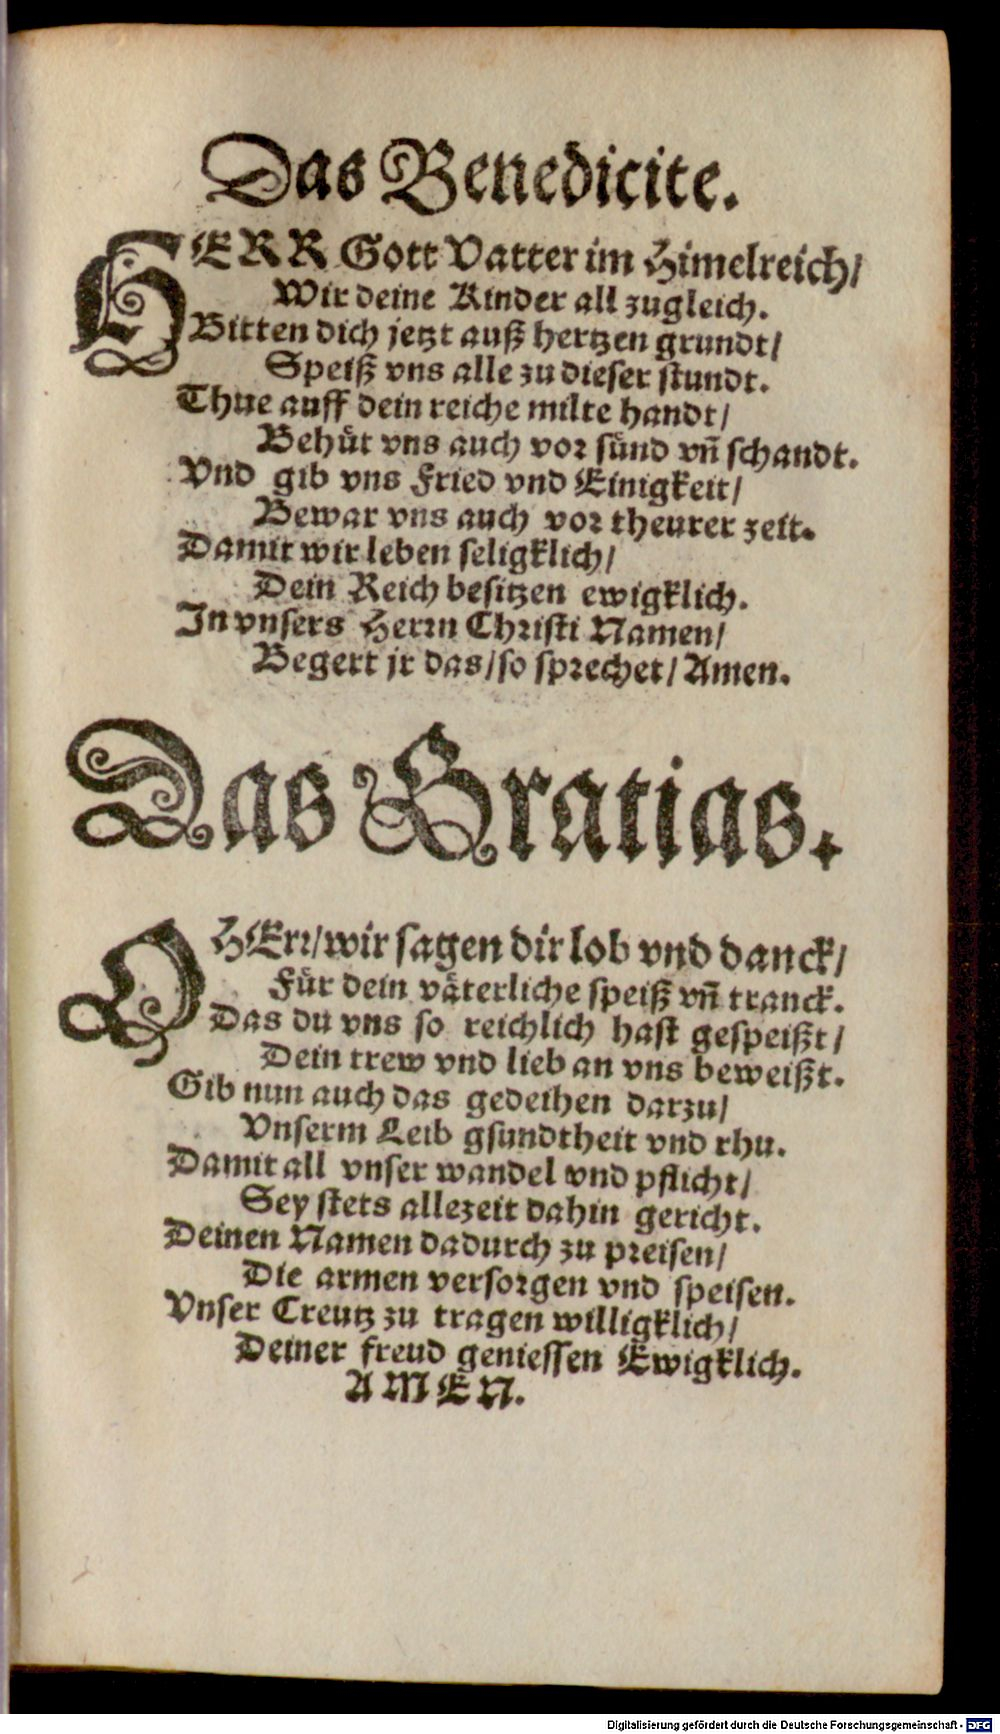 Das Benedicite.
HERR Gott Vatter im Himelreich/
Wir deine Kinder all zugleich.
Bitten dich jetzt auß hertzen grundt/
Speiß vns alle zu dieser stundt.
Thue auff dein reiche milte handt/
Behüt vns auch vor sünd vñ schandt.
Vnd gib vns Fried vnd Einigkeit/
Bewar vns auch vor theurer zeit.
Damit wir leben seligklich/
Dein Reich besitzen ewigklich.
In vnsers Herrn Christi Namen/
Begert jr das/ so sprechet/ Amen.
Das Gratias.
O HErr/ wir sagen dir lob vnd danck/
Für dein väterliche speiß vñ tranck.
Das du vns so reichlich hast gespeißt/
Dein trew vnd lieb an vns beweißt.
Gib nun auch das gedeihen darzu/
Vnserm Leib gsundtheit vnd rhu.
Damit all vnser wandel vnd pflicht/
Sey stets allezeit dahin gericht.
Deinen Namen dadurch zu preisen/
Die armen versorgen vnd speisen.
Vnser Creutz zu tragen willigklich/
Deiner freud geniessen Ewigklich.
AMEN.
Digitalisierung gefördert durch die Deutsche Forschungsgemeinschaft - DFG